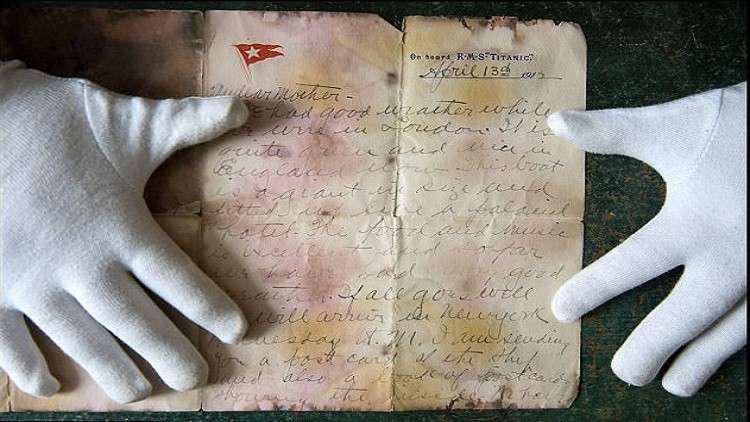 On board R·M·S "TITANIC."
April 13th 1912
My dear Mother-
had good weather while
we were in London. It is
quite green and nice in
England now. This boat
is a giant in size and
fitted up like a palacial
hotel. The food and music
is excellent and so far
we have had very good
weather. If all goes well
will arrive in New York
Wednesday A.M. I am sending
you a post card of the ship
and also a book of postcards
showing the inside